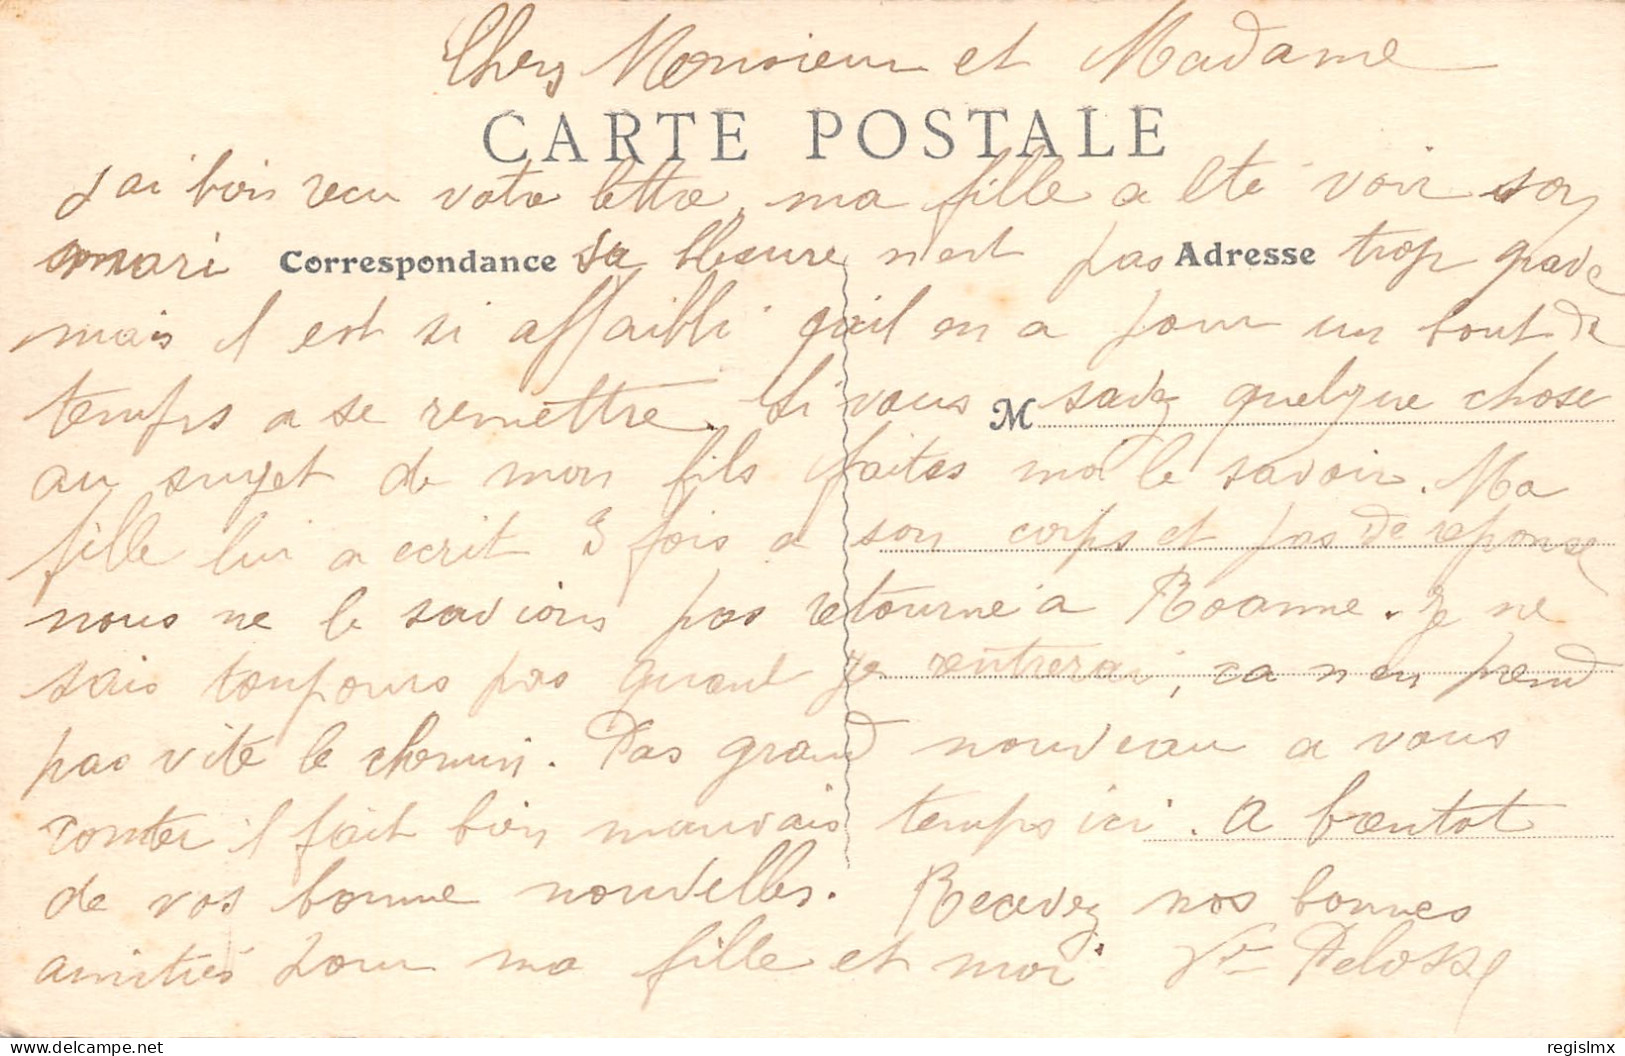 Chers Monsieur et Madame
CARTE POSTALE
J'ai bien recu votre lettre, ma fille a eté voir son
mari Correspondance sa blesure n'est pas Adresse trop grave
mais il est si affaibli qu'il en a pour un bout de
temps a se remettre. Si vous M savez quelque chose
au sujet de mon fils faites moi le savoir. Ma
fille lui a ecrit 3 fois a son corps et pas de reponse
nous ne le savions pas retourné a Roanne. Je ne
sais toujours pas quant je rentrerai, ca n'en prend
pas vite le chemin. Pas grand nouveau a vous
conter il fait bien mauvais temps ici. A bientot
de vos bonne nouvelles. Recevez nos bonnes
amitiés pour ma fille et moi Vve
delcampe.net
regislmx